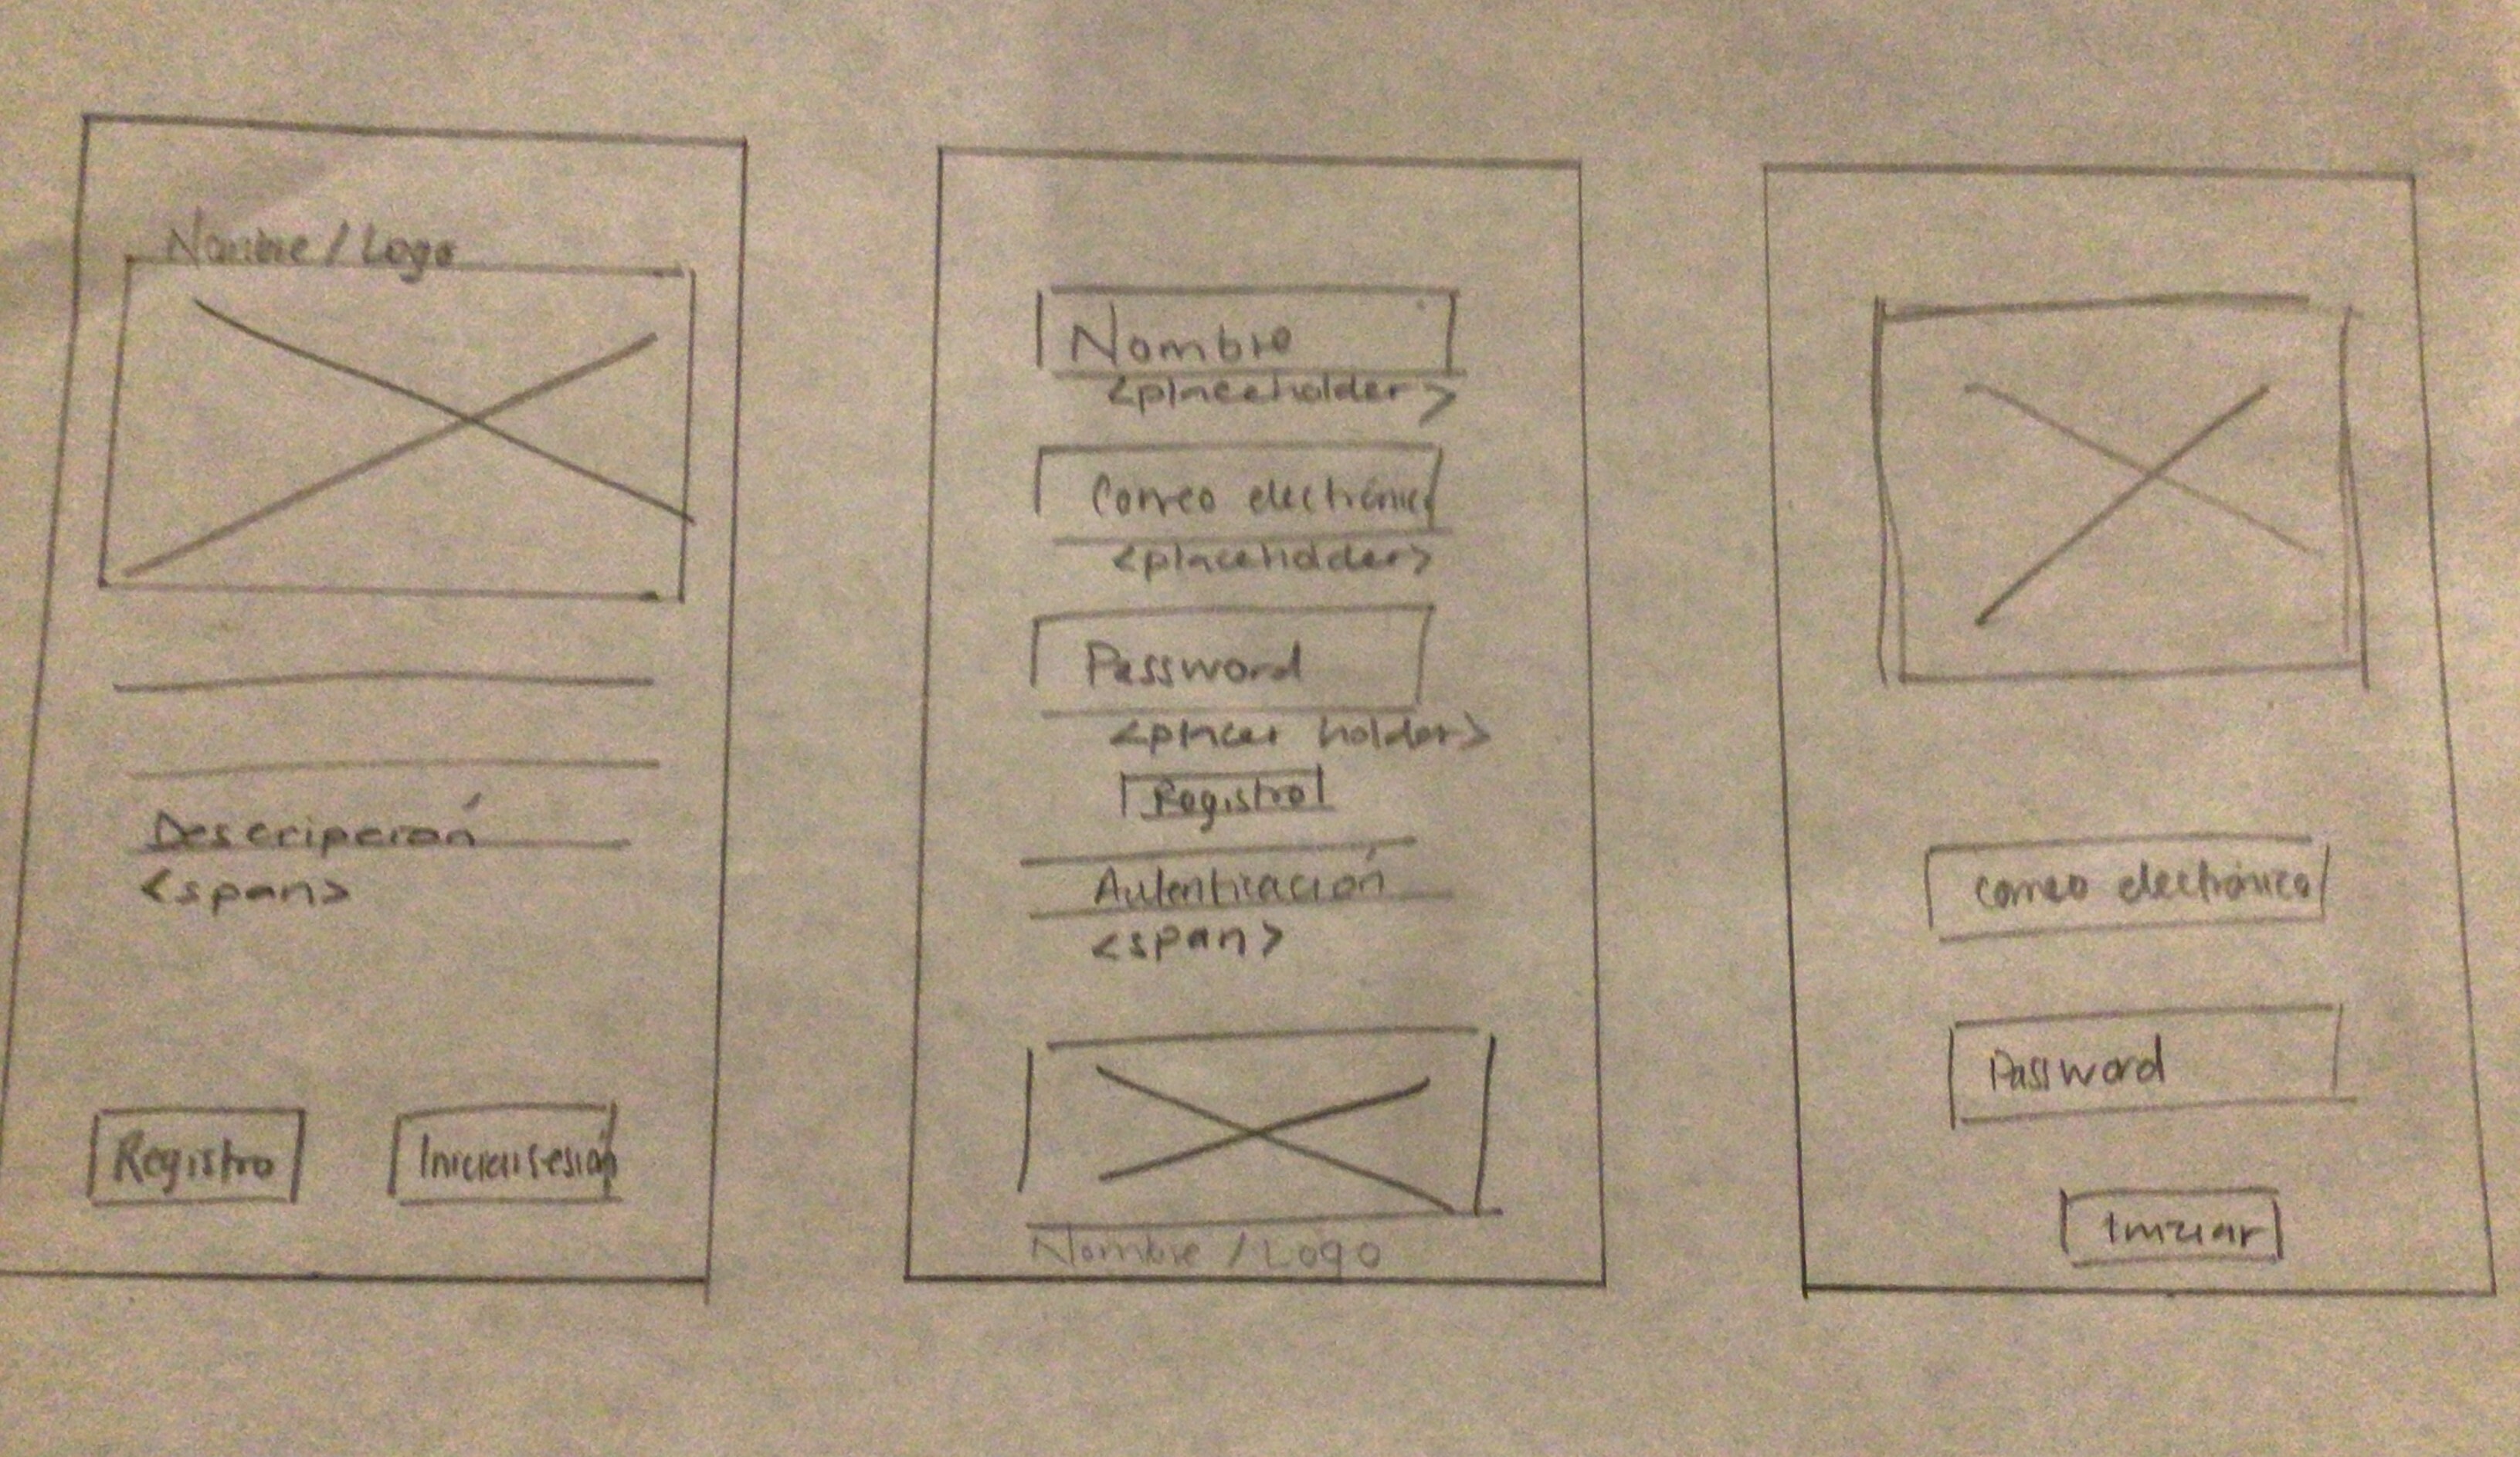 Nombre / Logo
Descripción
<span>
Registro
Iniciar sesión
Nombre
<placeholder>
Correo electrónico
<placeholder>
Password
<placer holder>
Registro
Autenticación
<span>
Nombre / Logo
correo electrónico
Password
Iniciar